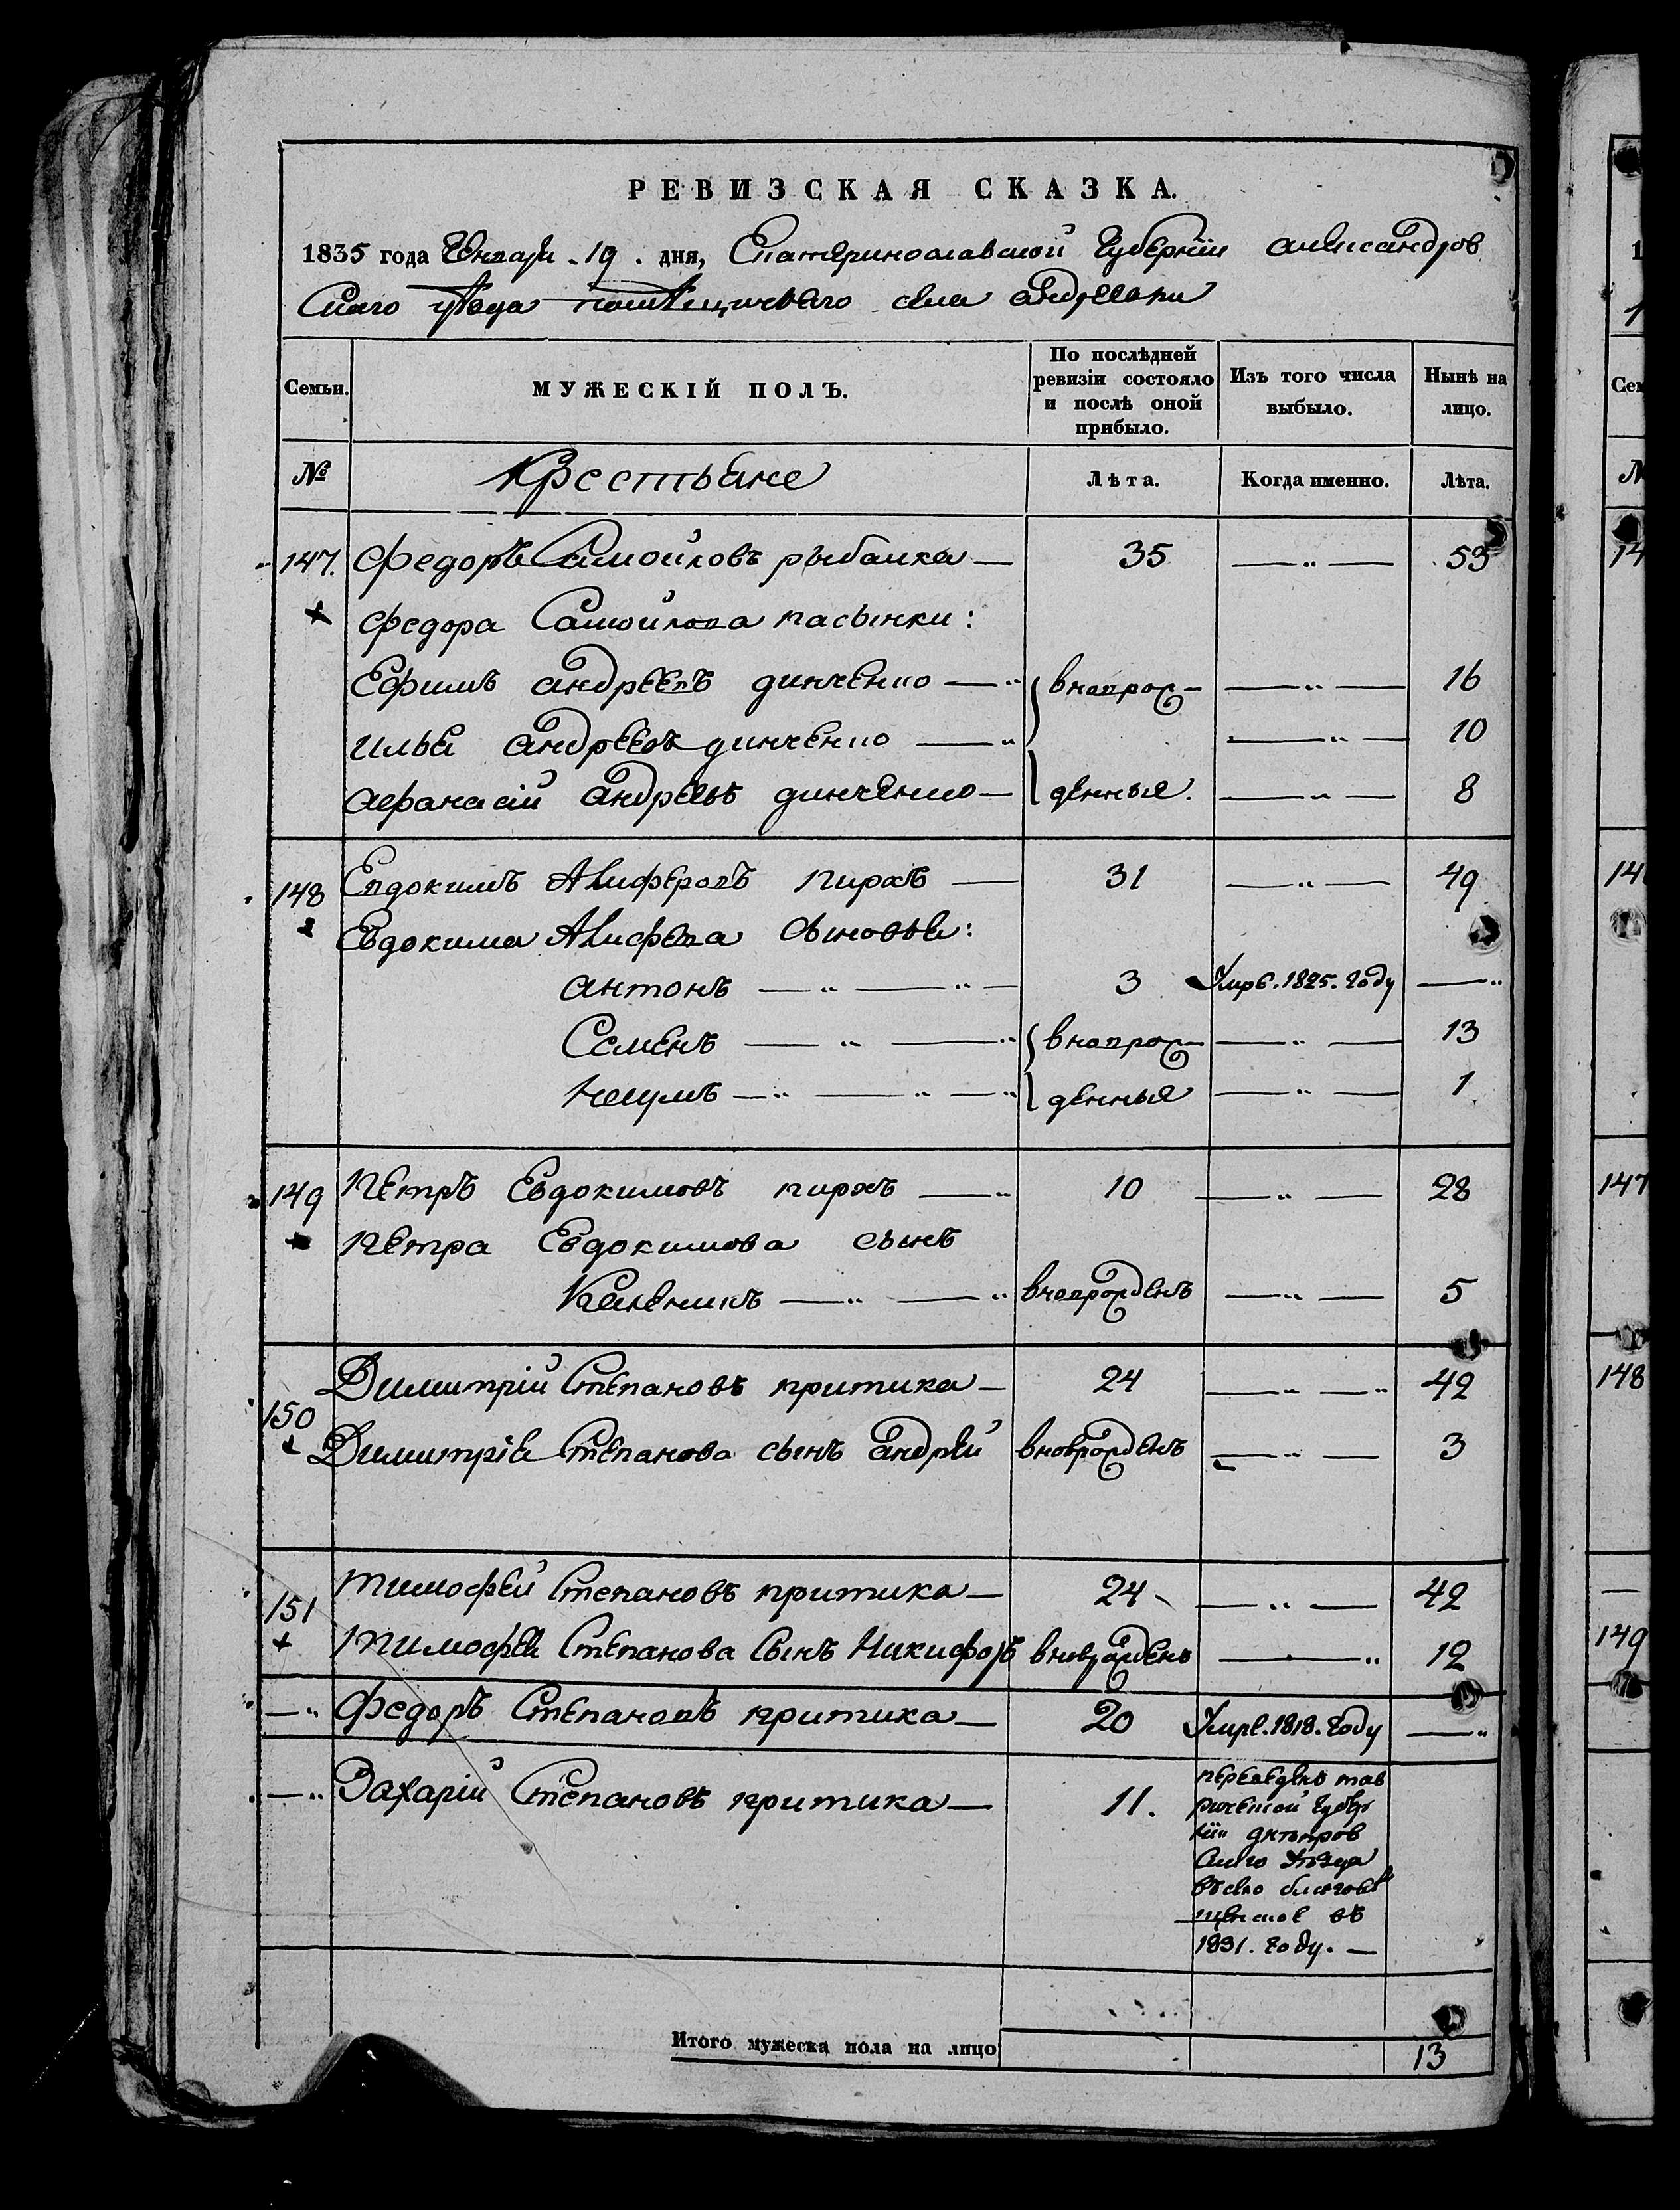 РЕВИЗСКАЯ СКАЗКА.
1835 года Генваря .19. дня, Екатеринославской Губерніи александров
скаго уѣзда помѣщичьяго села андреевки
Семьи.
МУЖЕСКІЙ ПОЛЪ.
По послѣдней ревизіи состояло и послѣ оной прибыло.
Изъ того числа выбыло.
Нынѣ на лицо.
№ Крестьяне Лѣта. Когда именно. Лѣта.
147. Федоръ Самойловъ рыбалка — 35 — „ — 53
Федора Самойлова пасынки:
Ефимъ андреевъ динченко — „ вновьрож- — „ — 16
илья андреевъ динченко — „ — „ — 10
афанасій андреевъ динченко — денные. — „ — 8
148 Евдокимъ Алиферовъ пирхъ — 31 — „ — 49
Евдокима Алифера сыновья:
антонъ — „ — „ — 3 Умре. 1825. году — „
Семенъ — „ — „ вновьрож- — „ — 13
Наумъ — „ — „ — „ денные — „ — 1
149 Петръ Евдокимовъ пирхъ — „ 10 — „ — 28
Петра Евдокимова сынъ
Каленикъ — „ — „ вновьрожденъ — „ — 5
150 Димитрій Степановъ притика — 24 — „ — „ 42
Димитрія Степанова сынъ андрей вновьрожденъ — „ — 3
151 Тимофей Степановъ притика — 24 — „ — 42
Тимофея Степанова сынъ Никифоръ вновьрожденъ — „ 12
— „ Федоръ Степановъ притика — 20 Умре. 1818. году — „
— „ Захарій Степановъ притика — 11. переведенъ тав
рической губер
ніи днѣпров
скаго уѣзда
въ село благовѣ
щенское въ
1831. году. —
Итого мужеска пола на лицо 13
Сем
№
14
147
148
149